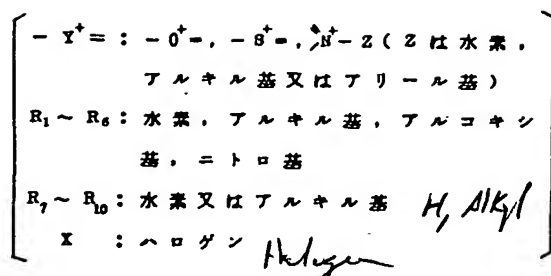 - Y⁺= : - O⁺=, - S⁺=, >N⁺- Z ( Z は 水 素 ,
アルキル基又はアリール基)
R₁ ~ R₆ : 水素, アルキル基, アルコキシ
基, ニトロ基
R₇ ~ R₁₀ : 水素又はアルキル基 H, Alkyl
X : ハロゲン Halogen